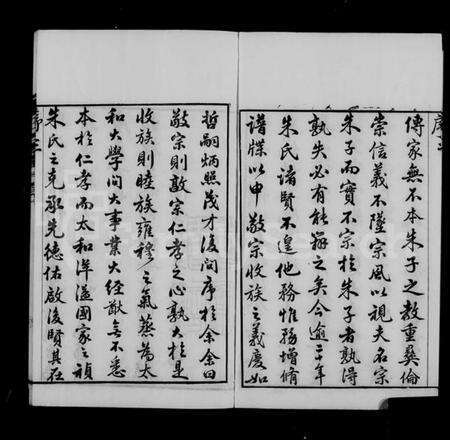 傳家無不本朱子之教重彝倫
崇信義不墜宗風以視夫名宗
朱子而實不宗於朱子者孰得
孰失必有能辨之矣今逾二年
朱氏諸賢不遑他務惟務增脩
譜牒以申敬宗收族之義慶如
哲嗣炳照茂才復問序於余余曰
敬宗則敦宗仁孝之心孰大於是
收族則睦族雍穆之氣蒸為太
和大學問大事業大經猷無不悉
本於仁孝而太和洋溢國家之禎
朱氏之克承先德佑啟後賢其在